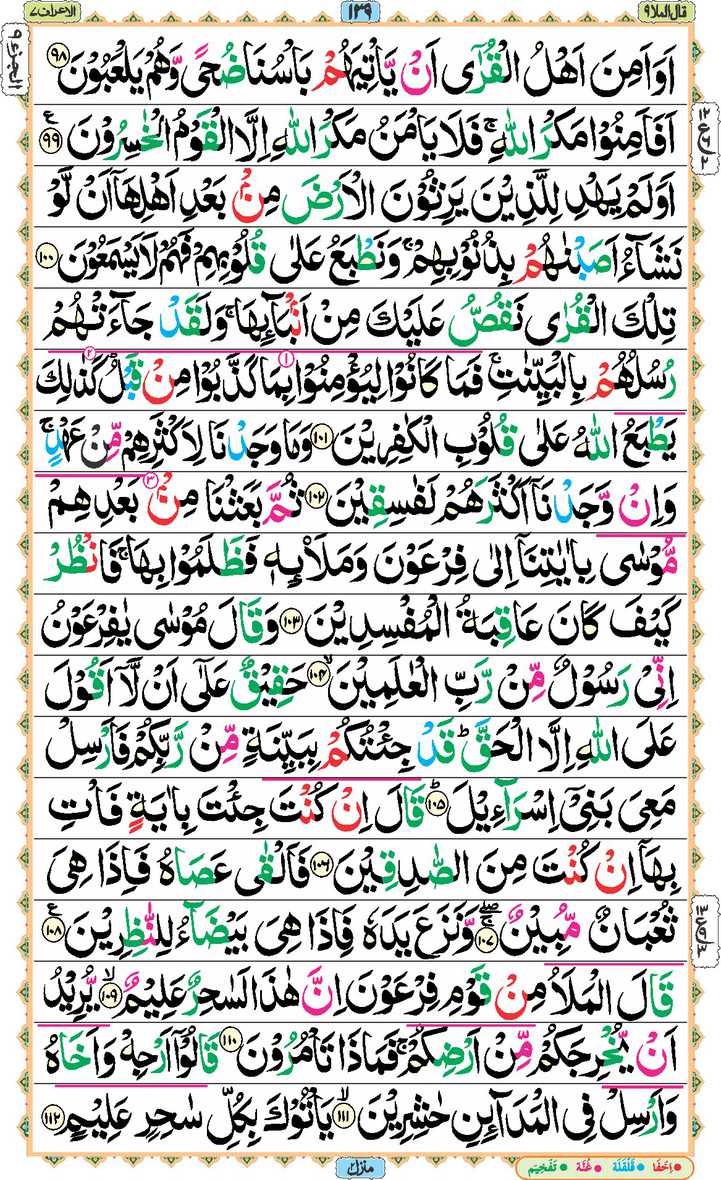 قال الملا ٩
١٣٩
الاعراف ٧
الجزء ٩
اَوَاَمِنَ اَهْلُ الْقُرٰٓى اَنْ يَّاْتِيَهُمْ بَاْسُنَا ضُحًى وَّهُمْ يَلْعَبُوْنَ ٩٨
اَفَاَمِنُوْا مَكْرَ اللّٰهِ ۚ فَلَا يَاْمَنُ مَكْرَ اللّٰهِ اِلَّا الْقَوْمُ الْخٰسِرُوْنَ ٩٩ ع
اَوَلَمْ يَهْدِ لِلَّذِيْنَ يَرِثُوْنَ الْاَرْضَ مِنْۢ بَعْدِ اَهْلِهَاۤ اَنْ لَّوْ
نَشَآءُ اَصَبْنٰهُمْ بِذُنُوْبِهِمْ ۚ وَنَطْبَعُ عَلٰى قُلُوْبِهِمْ فَهُمْ لَا يَسْمَعُوْنَ ١٠٠
تِلْكَ الْقُرٰى نَقُصُّ عَلَيْكَ مِنْ اَنْۢبَآئِهَا ۚ وَلَقَدْ جَآءَتْهُمْ
رُسُلُهُمْ بِالْبَيِّنٰتِ ۚ فَمَا كَانُوْا لِيُؤْمِنُوْا بِمَا كَذَّبُوْا مِنْ قَبْلُ ؕ كَذٰلِكَ
يَطْبَعُ اللّٰهُ عَلٰى قُلُوْبِ الْكٰفِرِيْنَ ١٠١ وَمَا وَجَدْنَا لِاَكْثَرِهِمْ مِّنْ عَهْدٍ ۚ
وَاِنْ وَّجَدْنَاۤ اَكْثَرَهُمْ لَفٰسِقِيْنَ ١٠٢ ثُمَّ بَعَثْنَا مِنْۢ بَعْدِهِمْ
مُّوْسٰى بِاٰيٰتِنَاۤ اِلٰى فِرْعَوْنَ وَمَلَا۟ئِهٖ فَظَلَمُوْا بِهَا ۚ فَانْظُرْ
كَيْفَ كَانَ عَاقِبَةُ الْمُفْسِدِيْنَ ١٠٣ وَقَالَ مُوْسٰى يٰفِرْعَوْنُ
اِنِّىْ رَسُوْلٌ مِّنْ رَّبِّ الْعٰلَمِيْنَ ۙ ١٠٤ حَقِيْقٌ عَلٰٓى اَنْ لَّاۤ اَقُوْلَ
عَلَى اللّٰهِ اِلَّا الْحَقَّ ؕ قَدْ جِئْتُكُمْ بِبَيِّنَةٍ مِّنْ رَّبِّكُمْ فَاَرْسِلْ
مَعِىَ بَنِىْۤ اِسْرَآءِيْلَ ؕ ١٠٥ قَالَ اِنْ كُنْتَ جِئْتَ بِاٰيَةٍ فَاْتِ
بِهَاۤ اِنْ كُنْتَ مِنَ الصّٰدِقِيْنَ ١٠٦ فَاَلْقٰى عَصَاهُ فَاِذَا هِىَ
ثُعْبَانٌ مُّبِيْنٌ ۚۖ ١٠٧ وَّنَزَعَ يَدَهٗ فَاِذَا هِىَ بَيْضَآءُ لِلنّٰظِرِيْنَ ١٠٨ ع
قَالَ الْمَلَاُ مِنْ قَوْمِ فِرْعَوْنَ اِنَّ هٰذَا لَسٰحِرٌ عَلِيْمٌ ۙ ١٠٩ يُّرِيْدُ
اَنْ يُّخْرِجَكُمْ مِّنْ اَرْضِكُمْ ۚ فَمَاذَا تَاْمُرُوْنَ ١١٠ قَالُوْۤا اَرْجِهْ وَاَخَاهُ
وَاَرْسِلْ فِى الْمَدَآئِنِ حٰشِرِيْنَ ۙ ١١١ يَاْتُوْكَ بِكُلِّ سٰحِرٍ عَلِيْمٍ ١١٢
منزل ٢
اخفا قلقله غنه تفخيم